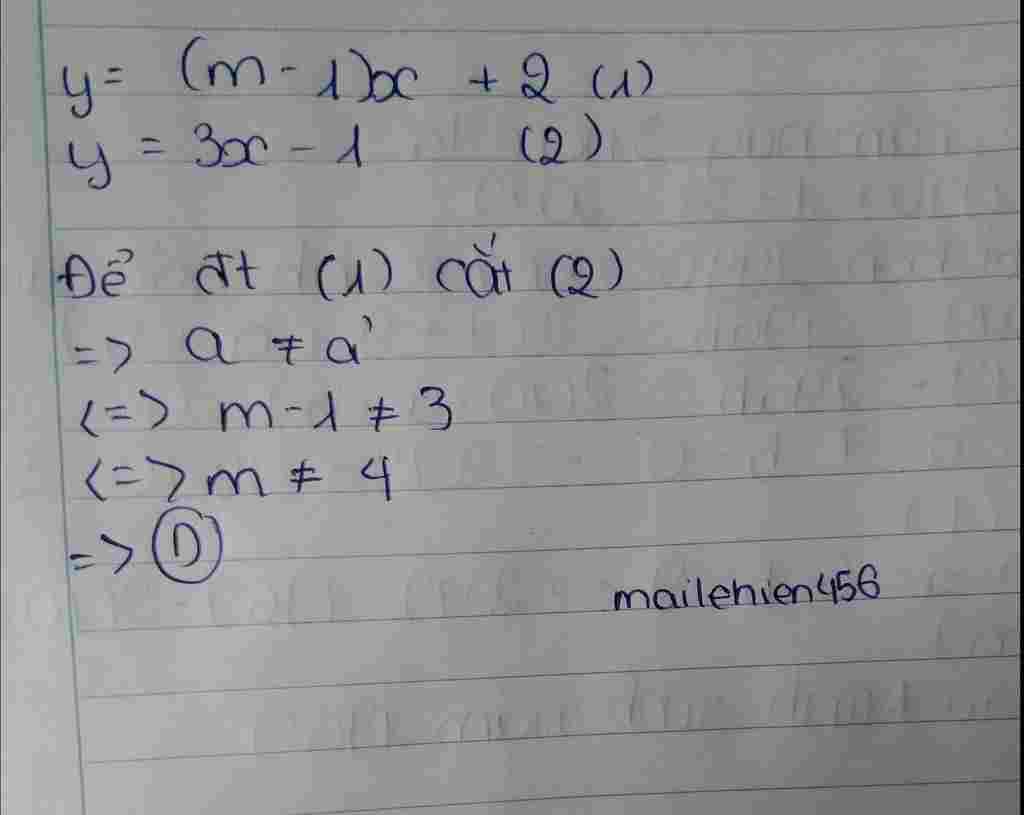 y = (m - 1)x + 2 (1)
y = 3x - 1 (2)
Để đt (1) cắt (2)
=> a ≠ a'
<=> m - 1 ≠ 3
<=> m ≠ 4
=> D
mailehien456